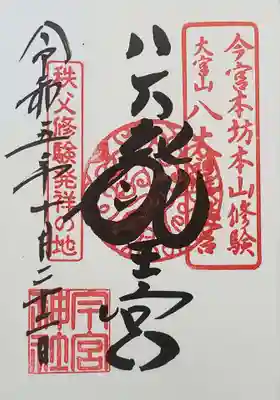 今宮本坊本山修験
大宮山 八大龍王宮
八大龍王宮
秩父修験発祥の地
令和五年十月
今宮神社